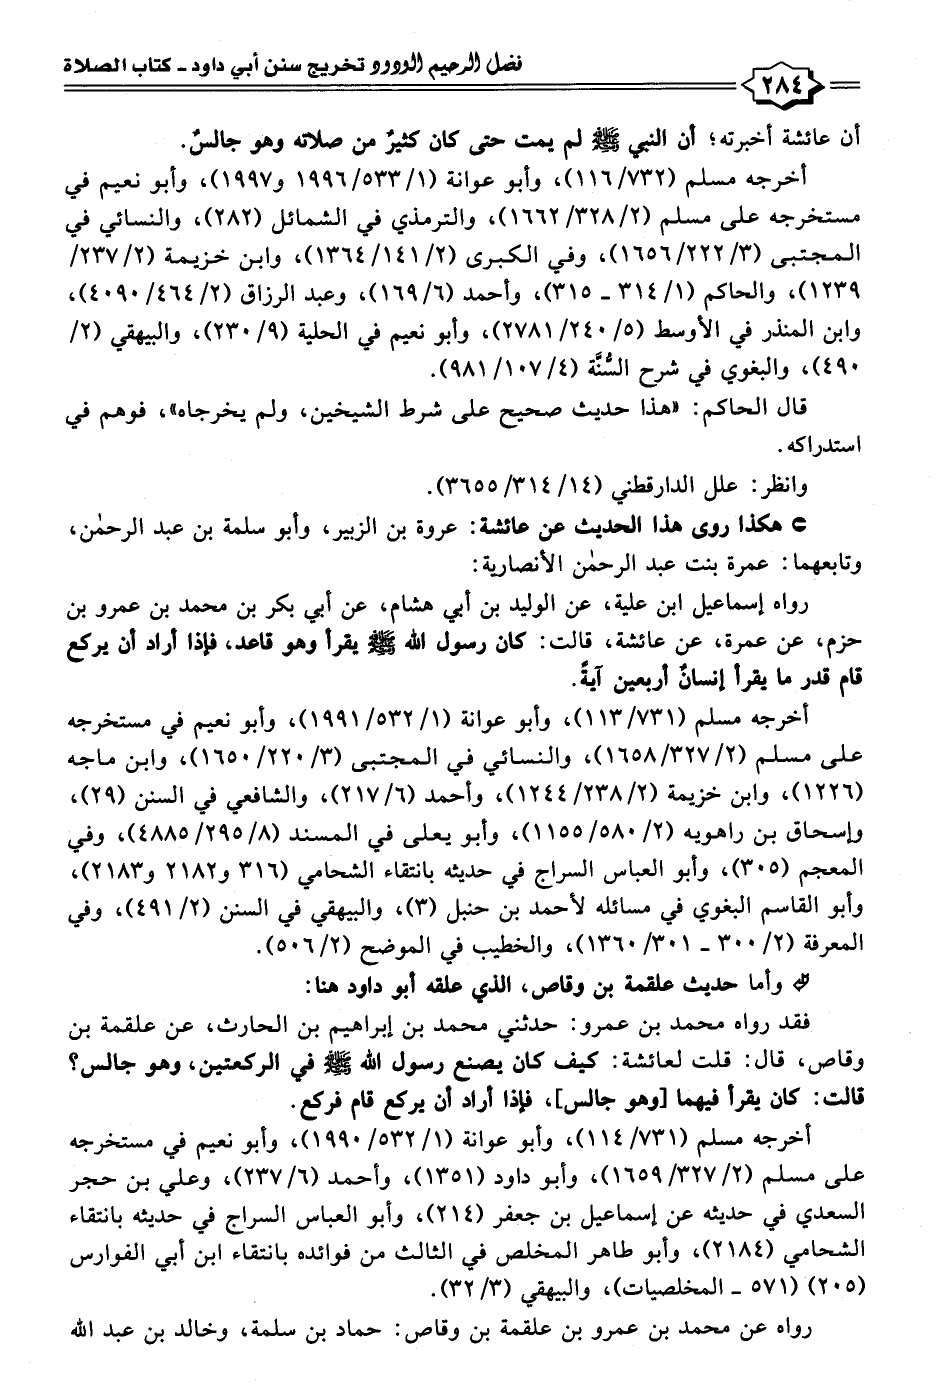 فضل الرحيم الودود تخريج سنن أبي داود - كتاب الصلاة
٢٨٤
أن عائشة أخبرته؛ أن النبي ﷺ لم يمت حتى كان كثيرٌ من صلاته وهو جالسٌ.
أخرجه مسلم (١١٦/٧٣٢)، وأبو عوانة (١٩٩٦/٥٣٣/١ و١٩٩٧)، وأبو نعيم في
مستخرجه على مسلم (١٦٦٢/٣٢٨/٢)، والترمذي في الشمائل (٢٨٢)، والنسائي في
المجتبى (١٦٥٦/٢٢٢/٣)، وفي الكبرى (١٣٦٤/١٤١/٢)، وابن خزيمة (٢٣٧/٢/
١٢٣٩)، والحاكم (٣١٤/١ - ٣١٥)، وأحمد (١٦٩/٦)، وعبد الرزاق (٤٠٩٠/٤٦٤/٢)،
وابن المنذر في الأوسط (٢٧٨١/٢٤٠/٥)، وأبو نعيم في الحلية (٢٣٠/٩)، والبيهقي (٢/
٤٩٠)، والبغوي في شرح السُّنَّة (٩٨١/١٠٧/٤).
قال الحاكم: «هذا حديث صحيح على شرط الشيخين، ولم يخرجاه»، فوهم في
استدراكه.
وانظر: علل الدارقطني (٣٦٥٥/٣١٤/١٤).
هكذا روى هذا الحديث عن عائشة: عروة بن الزبير، وأبو سلمة بن عبد الرحمٰن،
وتابعهما: عمرة بنت عبد الرحمٰن الأنصارية:
رواه إسماعيل ابن علية، عن الوليد بن أبي هشام، عن أبي بكر بن محمد بن عمرو بن
حزم، عن عمرة، عن عائشة، قالت: كان رسول الله ﷺ يقرأ وهو قاعد، فإذا أراد أن يركع
قام قدر ما يقرأ إنسانٌ أربعين آيةً.
أخرجه مسلم (١١٣/٧٣١)، وأبو عوانة (١٩٩١/٥٣٢/١)، وأبو نعيم في مستخرجه
على مسلم (١٦٥٨/٣٢٧/٢)، والنسائي في المجتبى (١٦٥٠/٢٢٠/٣)، وابن ماجه
(١٢٢٦)، وابن خزيمة (١٢٤٤/٢٣٨/٢)، وأحمد (٢١٧/٦)، والشافعي في السنن (٢٩)،
وإسحاق بن راهويه (١١٥٥/٥٨٠/٢)، وأبو يعلى في المسند (٤٨٨٥/٢٩٥/٨)، وفي
المعجم (٣٠٥)، وأبو العباس السراج في حديثه بانتقاء الشحامي (٣١٦ و٢١٨٢ و٢١٨٣)،
وأبو القاسم البغوي في مسائله لأحمد بن حنبل (٣)، والبيهقي في السنن (٤٩١/٢)، وفي
المعرفة (٣٠٠/٢ - ١٣٦٠/٣٠١)، والخطيب في الموضح (٥٠٦/٢).
وأما حديث علقمة بن وقاص، الذي علقه أبو داود هنا:
فقد رواه محمد بن عمرو: حدثني محمد بن إبراهيم بن الحارث، عن علقمة بن
وقاص، قال: قلت لعائشة: كيف كان يصنع رسول الله ﷺ في الركعتين، وهو جالس؟
قالت: كان يقرأ فيهما [وهو جالس]، فإذا أراد أن يركع قام فركع.
أخرجه مسلم (١١٤/٧٣١)، وأبو عوانة (١٩٩٠/٥٣٢/١)، وأبو نعيم في مستخرجه
على مسلم (١٦٥٩/٣٢٧/٢)، وأبو داود (١٣٥١)، وأحمد (٢٣٧/٦)، وعلي بن حجر
السعدي في حديثه عن إسماعيل بن جعفر (٢١٤)، وأبو العباس السراج في حديثه بانتقاء
الشحامي (٢١٨٤)، وأبو طاهر المخلص في الثالث من فوائده بانتقاء ابن أبي الفوارس
(٢٠٥) (٥٧١ - المخلصيات)، والبيهقي (٣٢/٣).
رواه عن محمد بن عمرو بن علقمة بن وقاص: حماد بن سلمة، وخالد بن عبد الله